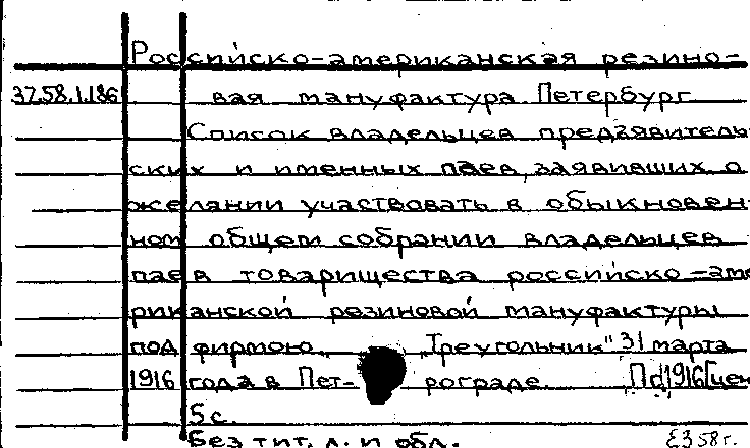 Российско-американская резино-
37.58.1.186 вая мануфактура. Петербург
Список владельцев предъявитель
ских и именных паев, заявивших о
желании участвовать в обыкновен
ном общем собрании владельцев
паев товарищества российско-аме
риканской резиновой мануфактуры
под фирмою „Треугольник" 31 марта
1916 года в Пет- рограде. Пд, 1916 [цен
5 с.
Без тит. л. и обл. 58 г.